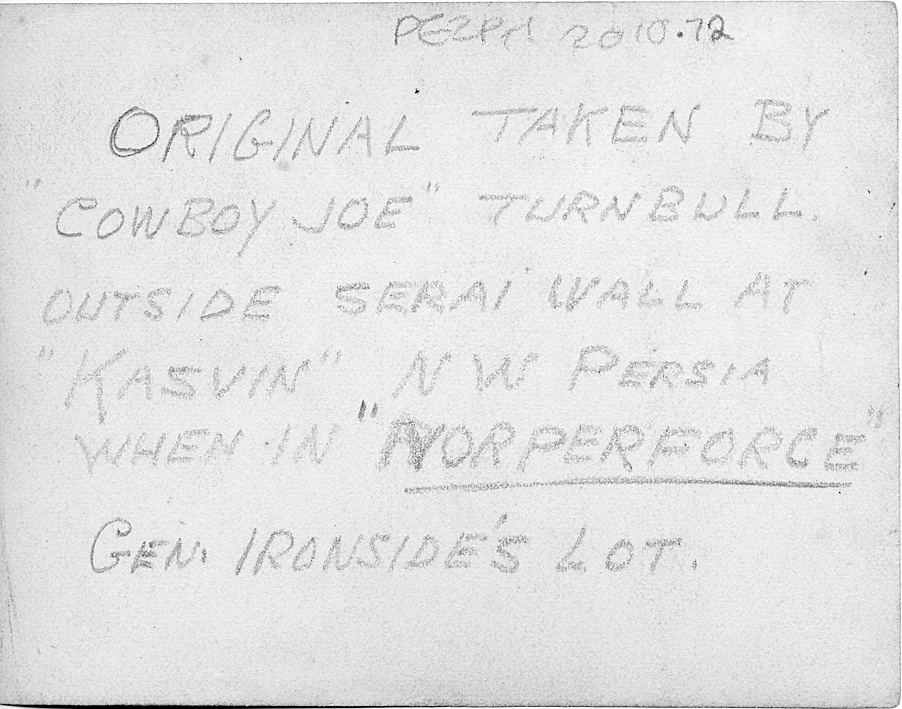 20 10.72
ORIGINAL TAKEN BY
"COWBOY JOE" TURNBULL.
OUTSIDE SERAI WALL AT
"KASVIN" NW PERSIA
WHEN IN "NORPERFORCE"
GEN. IRONSIDE'S LOT.